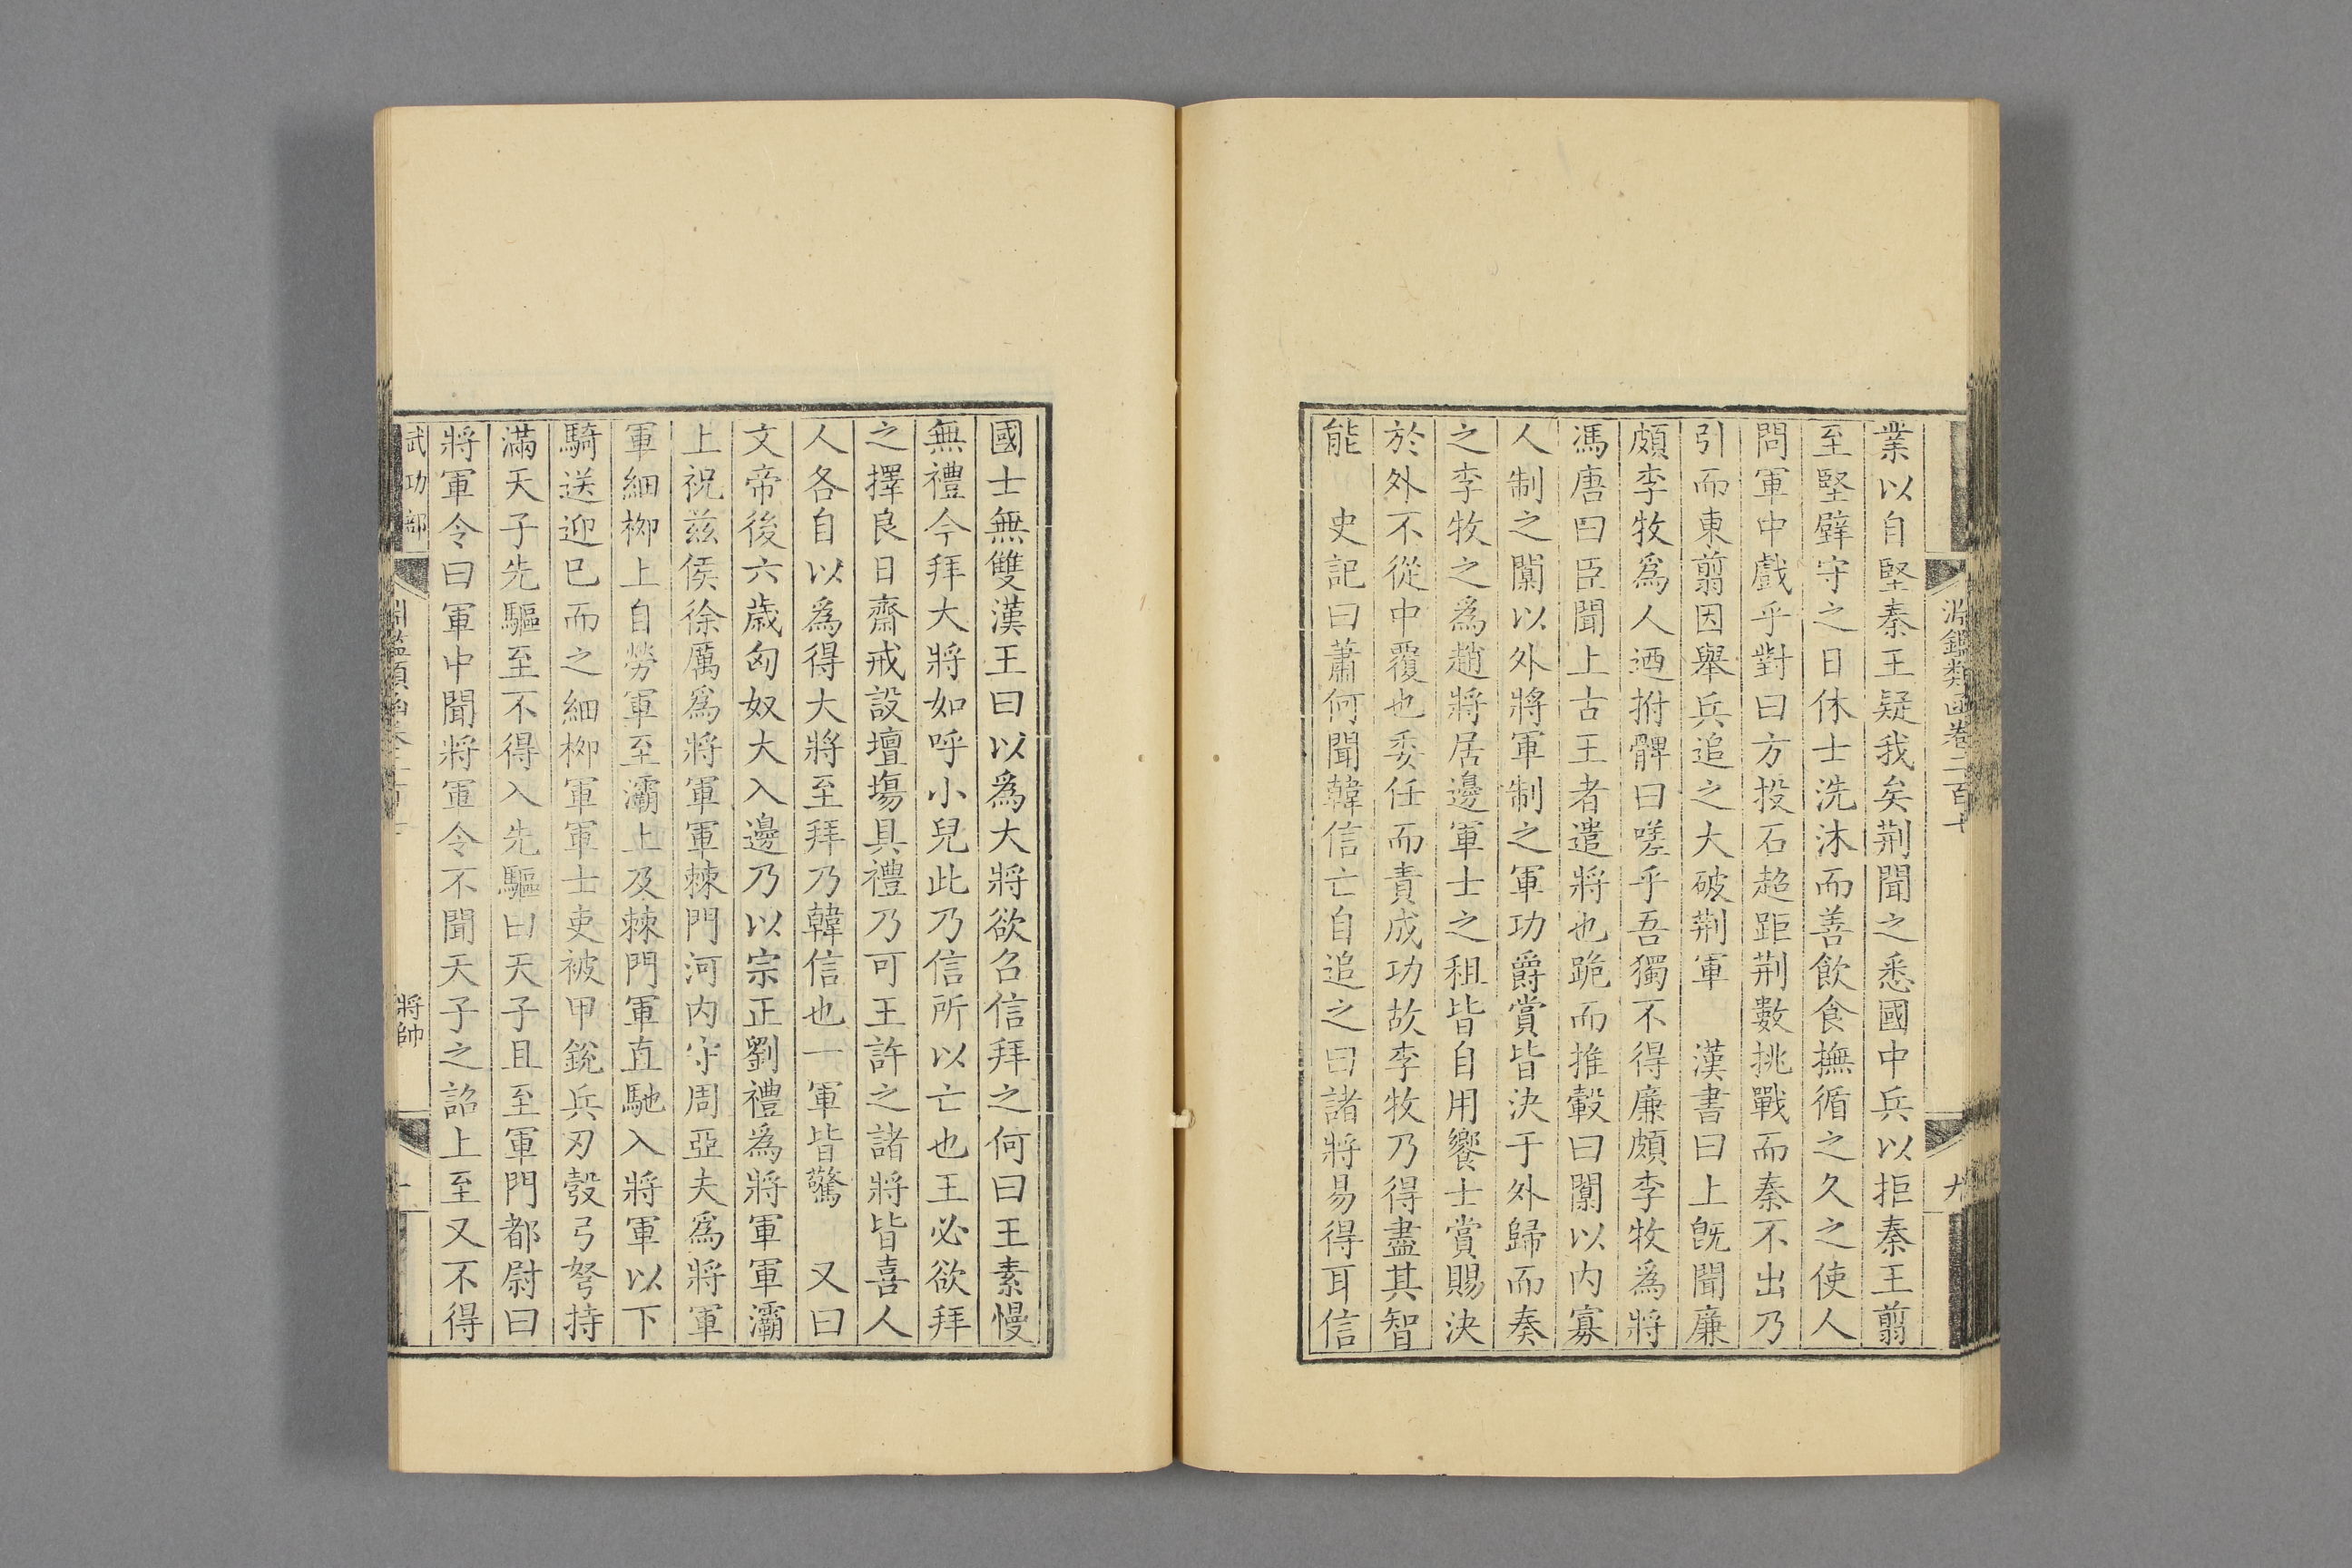 淵鑑類函卷二百十
九
業以自堅秦王疑我矣荆聞之悉國中兵以拒秦王翦
至堅壁守之日休士洗沐而善飲食撫循之久之使人
問軍中戲乎對曰方投石超距荆數挑戰而秦不出乃
引而東翦因舉兵追之大破荆軍　漢書曰上旣聞廉
頗李牧爲人迺拊髀曰嗟乎吾獨不得廉頗李牧爲將
馮唐曰臣聞上古王者遣將也跪而推轂曰闑以内寡
人制之闑以外將軍制之軍功爵賞皆決于外歸而奏
之李牧之爲趙將居邊軍士之租皆自用饗士賞賜決
於外不從中覆也委任而責成功故李牧乃得盡其智
能　史記曰蕭何聞韓信亡自追之曰諸將易得耳信
國士無雙漢王曰以爲大將欲召信拜之何曰王素慢
無禮今拜大將如呼小兒此乃信所以亡也王必欲拜
之擇良日齋戒設壇塲具禮乃可王許之諸將皆喜人
人各自以爲得大將至拜乃韓信也一軍皆驚　又曰
文帝後六歲匈奴大入邊乃以宗正劉禮爲將軍軍灞
上祝兹侯徐厲爲將軍軍棘門河内守周亞夫爲將軍
軍細栁上自勞軍至灞上及棘門軍直馳入將軍以下
騎送迎已而之細栁軍軍士吏被甲銳兵刃彀弓弩持
滿天子先驅至不得入先驅曰天子且至軍門都尉曰
將軍令曰軍中聞將軍令不聞天子之詔上至又不得
武功部
淵鑑類函卷二百十
將帥